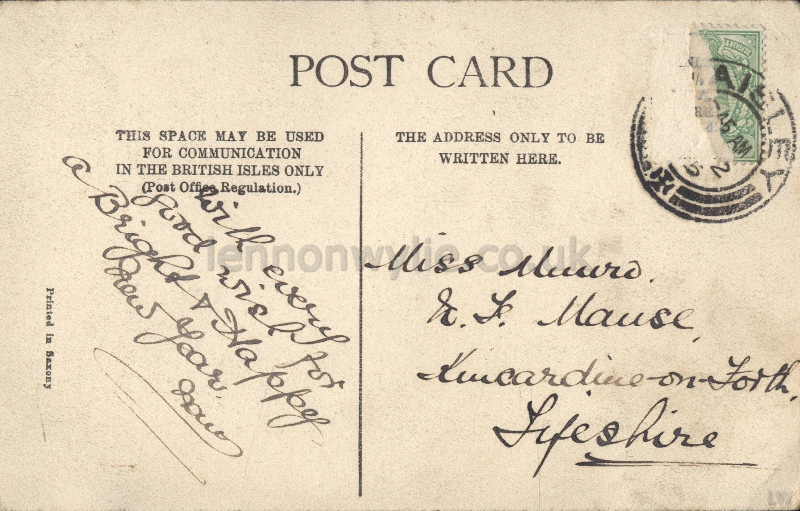 POST CARD
THIS SPACE MAY BE USED
FOR COMMUNICATION
IN THE BRITISH ISLES ONLY
(Post Office Regulation.)
THE ADDRESS ONLY TO BE
WRITTEN HERE.
With every
good wish for
a Bright & Happy
New Year.
Printed in Saxony
Miss Munro.
U. F. Manse,
Kincardine-on-Forth,
Fifeshire
PAISLEY
45 AM
lennonwylie.co.uk
LW